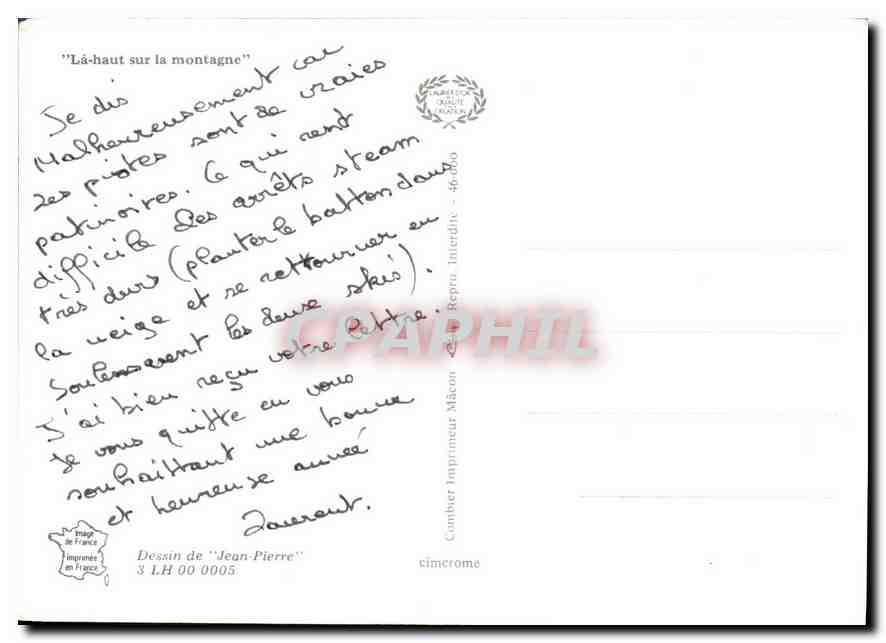 "Là-haut sur la montagne"
Je dis
Malheureusement car
les pistes sont de vraies
patinoires. Ce qui rent
difficile des arrêts steam
très durs (planter le batton dans
la neige et se rettourner en
soulevent les deuse skis).
J'ai bien reçu votre lettre.
Je vous quitte en vous
souhaittant une bonne
et heureuse année
Laurent.
LAURIER D'OR
DE LA
QUALITÉ
DE
CRÉATION
Combier Imprimeur Mâcon Repro. Interdite - 46-000
CPAPHIL
Image
de France
imprimée
en France
Dessin de "Jean-Pierre"
3 LH 00 0005
cimcrome